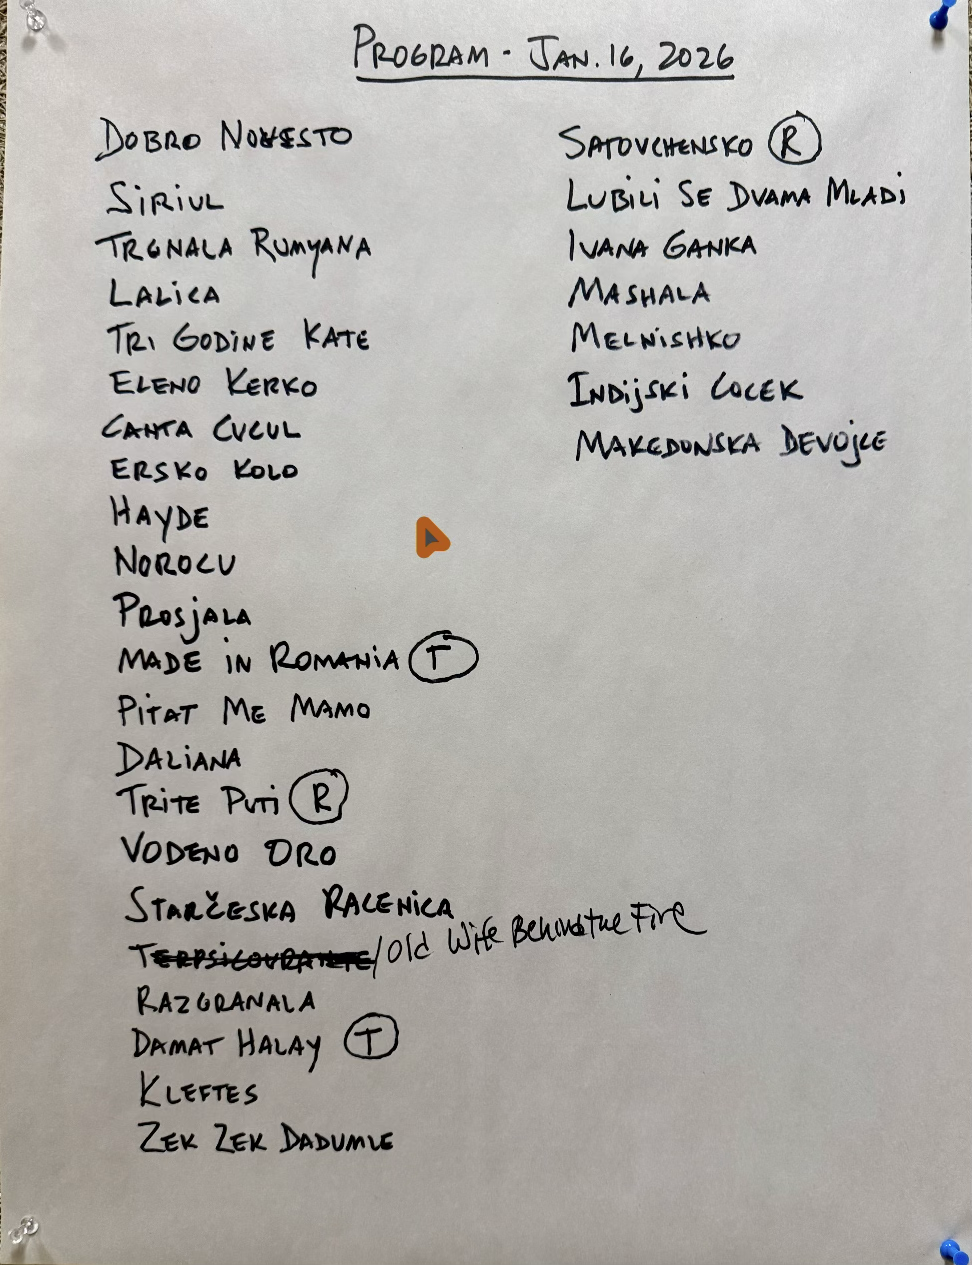 PROGRAM - JAN. 16, 2026
DOBRO NOVESTO
SIRIUL
TRGNALA RUMYANA
LALICA
TRI GODINE KATE
ELENO KERKO
CANTA CUCUL
ERSKO KOLO
HAYDE
NOROCU
PROSJALA
MADE IN ROMANIA T
PITAT ME MAMO
DALIANA
TRITE PUTI R
VODENO ORO
STARČESKA RACENICA
/Old Wife Behind the Fire
RAZGRANALA
DAMAT HALAY T
KLEFTES
ZEK ZEK DADUMLE
SATOVCHENSKO R
LUBILI SE DVAMA MLADI
IVANA GANKA
MASHALA
MELNISHKO
INDIJSKI COCEK
MAKEDONSKA DEVOJCE